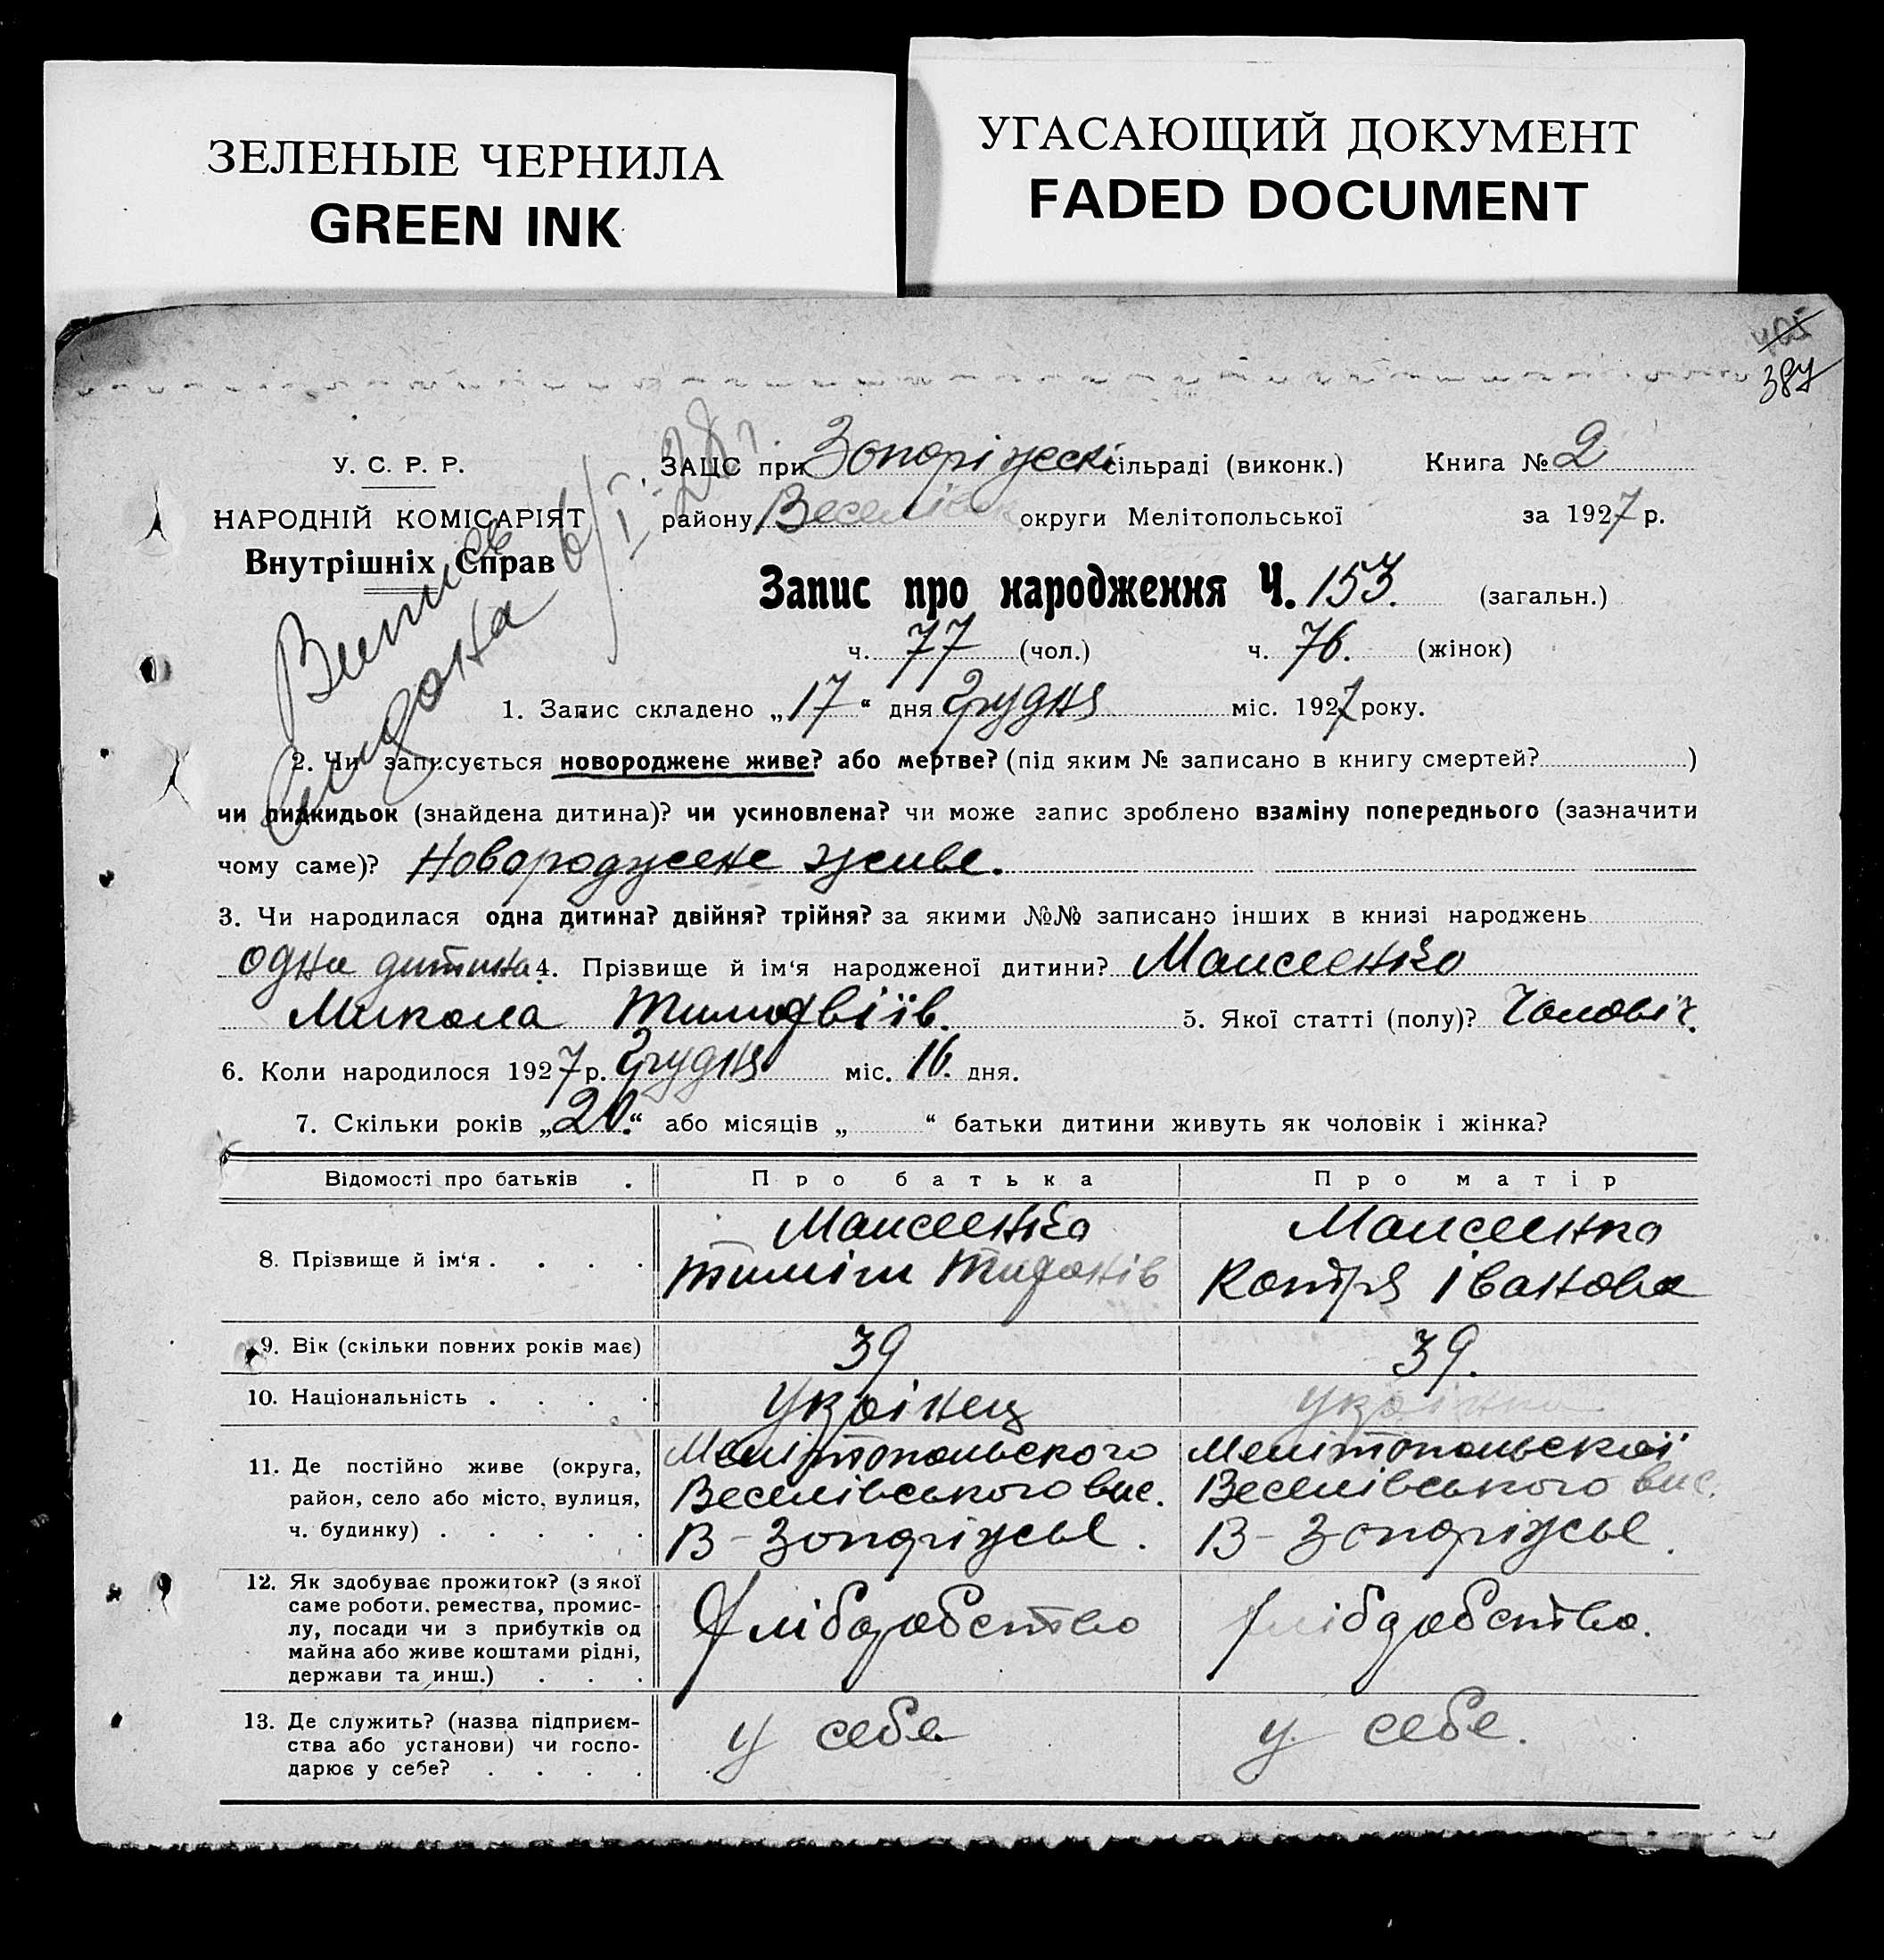 ЗЕЛЕНЫЕ ЧЕРНИЛА
GREEN INK
УГАСАЮЩИЙ ДОКУМЕНТ
FADED DOCUMENT
387
У. С. Р. Р.
НАРОДНІЙ КОМІСАРІЯТ
Внутрішніх Справ
6/I-28 г.
ЗАЦС при Запоріжскі сільраді (виконк.) Книга № 2
району Веселівск округи Мелітопольської за 1927 р.
Запис про народження Ч. 153. (загальн.)
ч. 77 (чол.) ч. 76. (жінок)
1. Запис складено „17“ дня Грудня міс. 1927 року.
2. Чи записується новороджене живе? або мертве? (під яким № записано в книгу смертей? )
чи пидкидьок (знайдена дитина)? чи усиновлена? чи може запис зроблено взаміну попереднього (зазначити
чому саме)? Новороджене живе.
3. Чи народилася одна дитина? двійня? трійня? за якими №№ записано інших в книзі народжень
одна дитина 4. Прізвище й ім‘я народженої дитини? Маисеенко
Микола 5. Якої статті (полу)? Чоловіч.
6. Коли народилося 1927 р. Грудня міс. 16. дня.
7. Скільки років „20.“ або місяців „ “ батьки дитини живуть як чоловік і жінка?
Відомості про батьків . Про батька Про матір
8. Прізвище й ім‘я . . . . Маисеенко Маисеенко
Катря Іванова
9. Вік (скільки повних років має) 39 39.
10. Національність . . . . Українец Українка
11. Де постійно живе (округа, район, село або місто, вулиця, ч. будинку) . . . . .
Мелітопольского Мелітопольскої
Веселівського вис. Веселівського вис.
В-Запоріжье. В-Запоріжье.
12. Як здобуває прожиток? (з якої саме роботи, ремества, промислу, посади чи з прибутків од майна або живе коштами рідні, держави та инш.) . . .
Хліборобство Хліборобство.
13. Де служить? (назва підприємства або установи) чи господарює у себе? . . . .
у себе у себе.